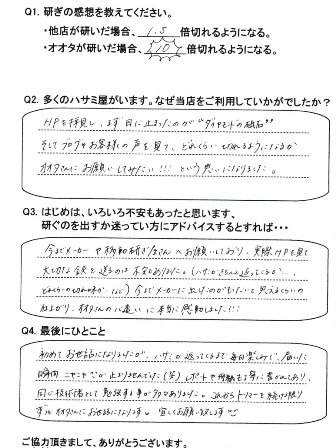 Q1. 研ぎの感想を教えてください。
・他店が研いだ場合、 1.5 倍切れるようになる。
・オオタが研いだ場合、 10 倍切れるようになる。
Q2. 多くのハサミ屋がいます。なぜ当店をご利用していかがでしたか?
HPを拝見し、まず目に止まったのが"ダイヤモンドの砥石"
そしてブログやお客様の声を見て、どれくらい切れるようになるか
オオタさんにお願いしてみたい!!! という思いになりました。
Q3. はじめは、いろいろ不安もあったと思います、
研ぐのを出すか迷ってい方にアドバイスするとすれば・・・
今までメーカーや移動研ぎ屋さんへお願いしており、実際HPを見て
大切な鋏を送るのは不安もありました。(ハサミがちゃんと返ってくるか…
どれくらいの切れ味か など) 今までメーカーに出していたのが
仕上がり、オオタさんの心遣いに本当に感動しました!!!
Q4. 最後にひとこと
初めてお世話になりましたが、ハサミが返ってくるまで毎日楽しみで、届いた
瞬間 ニヤニヤが止まりませんでした(笑) レポートや
同じ技術者として勉強する事が多々ありました。これからトリマーを続ける限り
オオタさんにお世話になります。宜しくお願い致します
ご協力頂きまして、ありがとうございます。